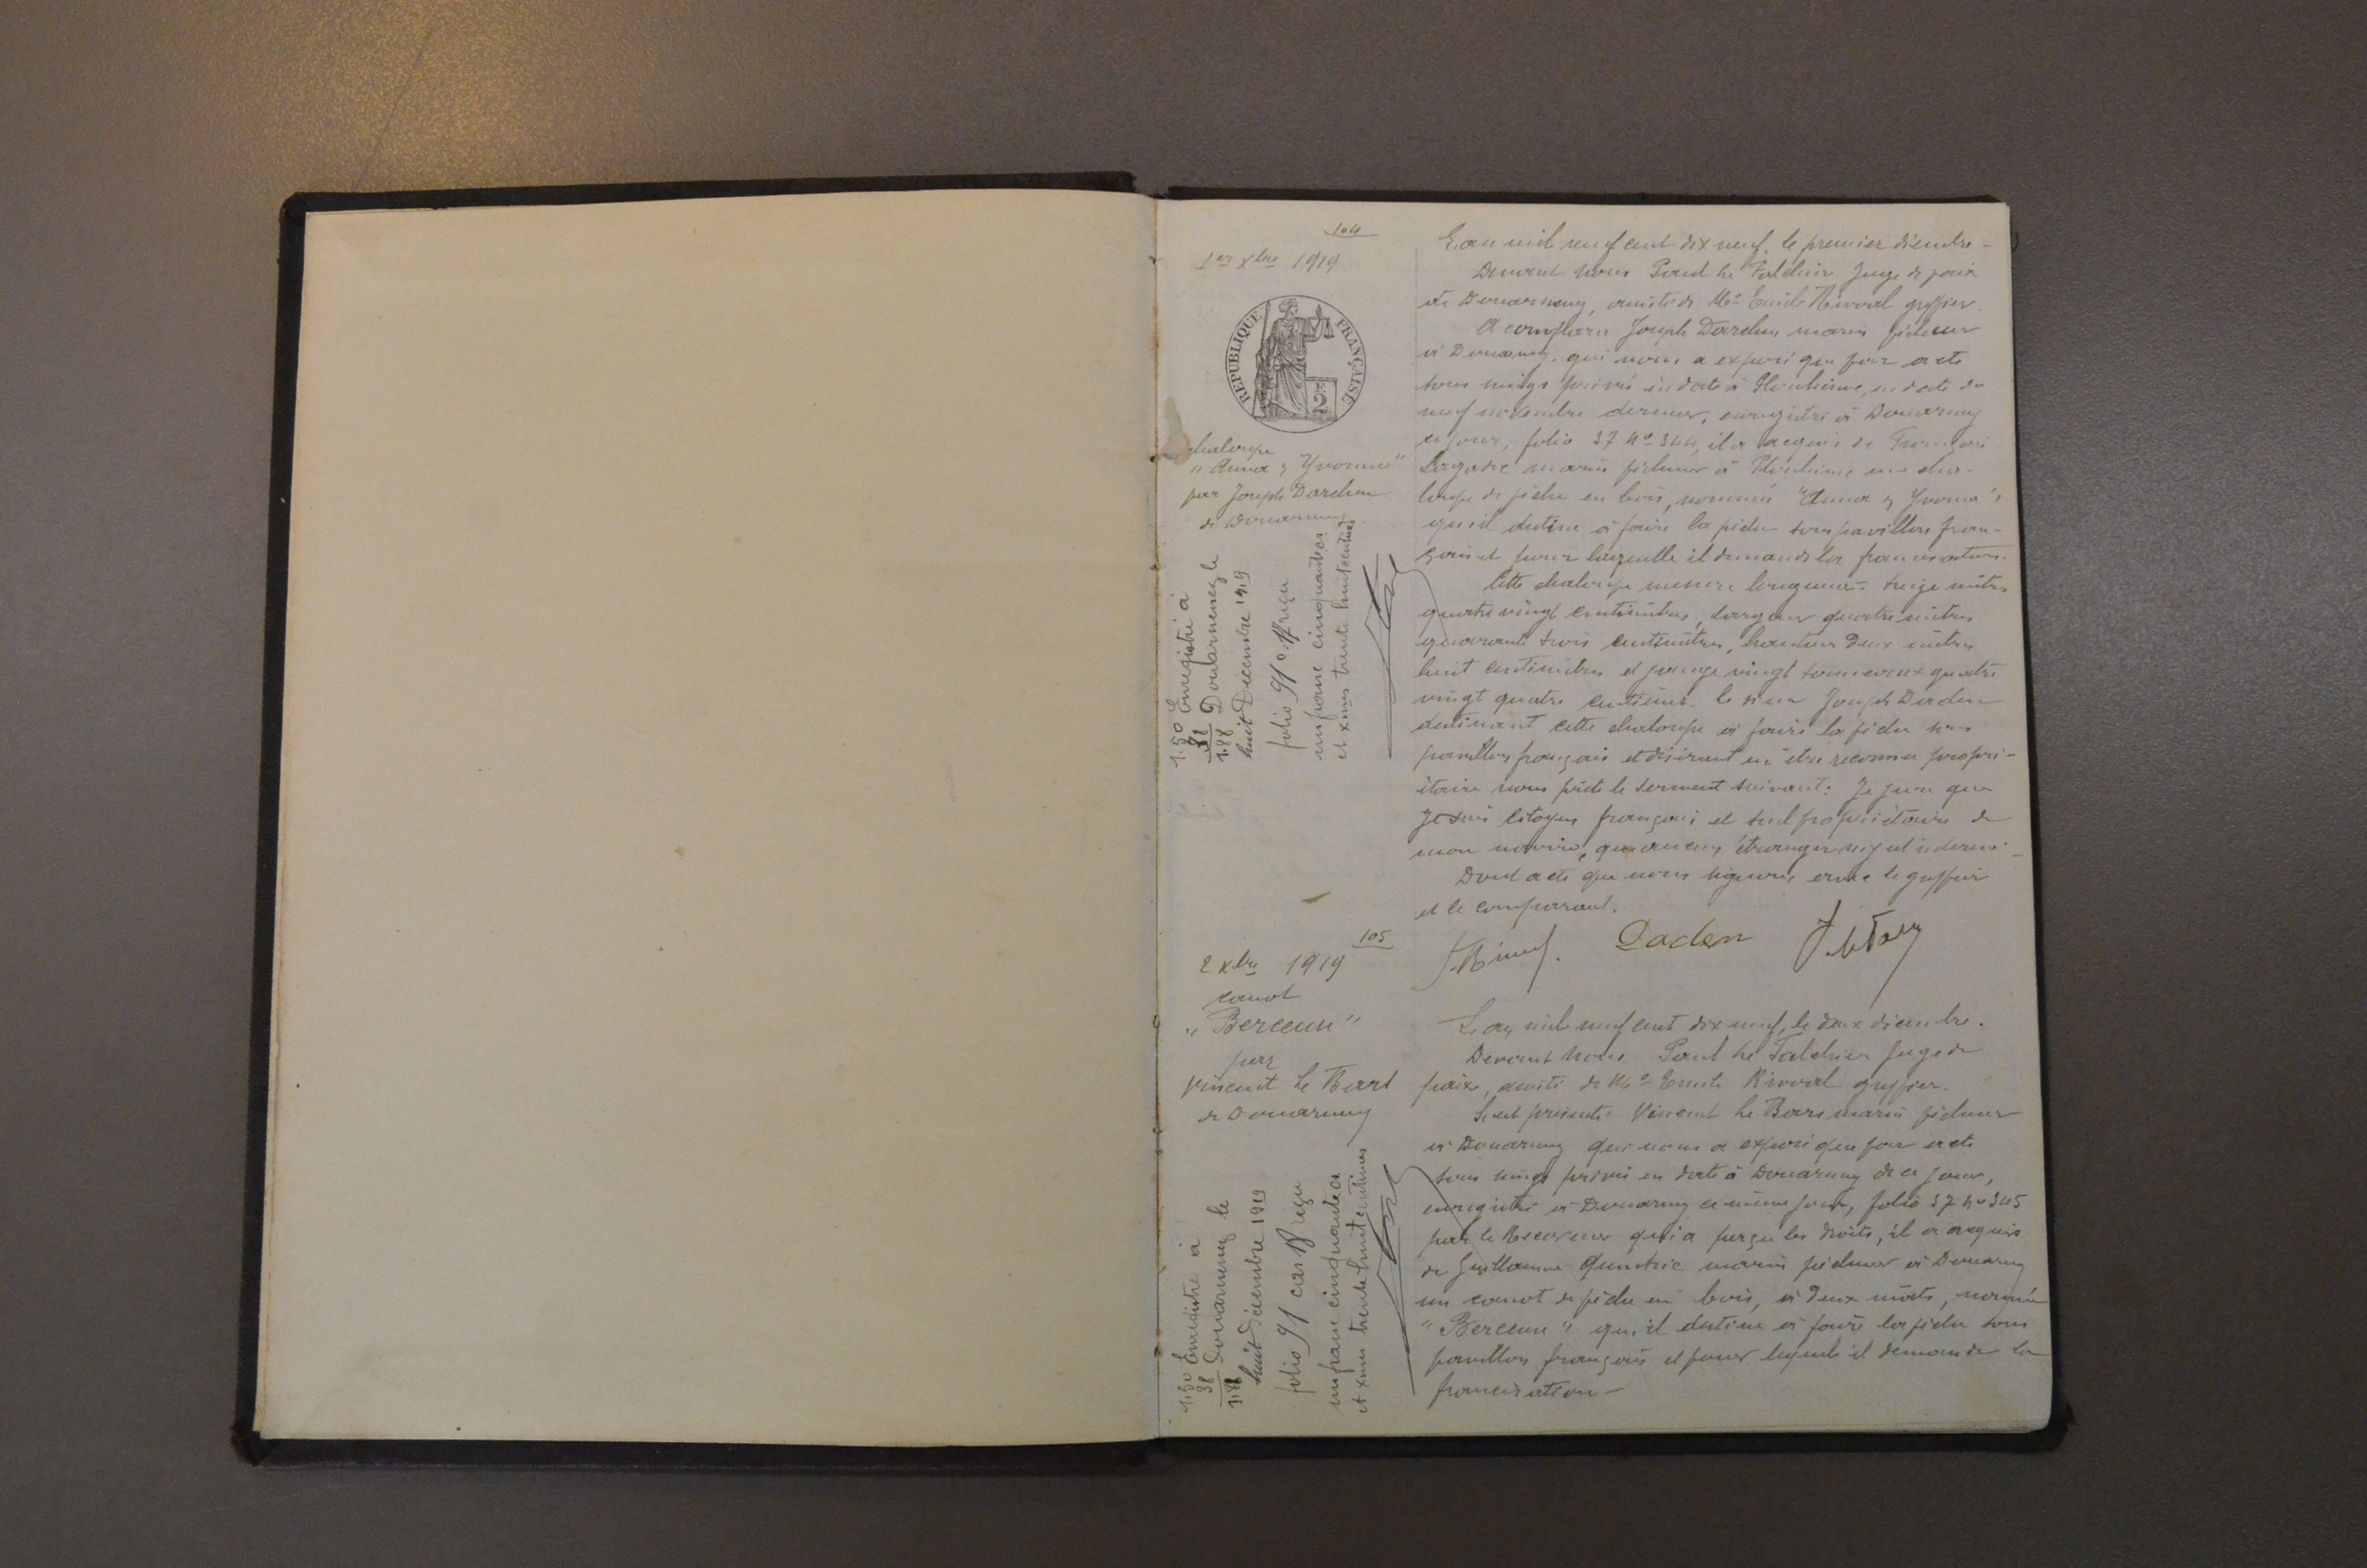 104
1er Xbre 1919
REPUBLIQUE FRANÇAISE
2
chaloupe
"Anna & Yvonne"
par Joseph Darchen
de Douarnenez
1.50 Enregistré à
38 Douarnenez le
1.88
huit Décembre 1919
folio 91 c. Reçu
un franc cinquante cs
et xmes trente huit centimes
L'an mil neuf cent dix neuf, le premier décembre -
Devant nous Paul Le Falchier Juge de paix
de Douarnenez, assisté de Me Emile Rivoal greffier.
A comparu Joseph Darchen marin pêcheur
à Douarnenez, qui nous a exposé que par acte
sous seings privés en date à Plouhinec, en date du
neuf novembre dernier, enregistré à Douarnenez
ce jour, folio 37 No 344, il a acquis de François
Lagadic marin pêcheur à Plouhinec une cha-
loupe de pêche en bois, nommée "Anna & Yvonne",
qu'il destine à faire la pêche sous pavillon fran-
çais et pour laquelle il demande la francisation.
Cette chaloupe mesure longueur: treize mètres
quatre vingt centimètres, largeur quatre mètres
quarante trois centimètres, hauteur deux mètres
huit centimètres et jauge vingt tonneaux quatre
vingt quatre centièmes. Le sieur Joseph Darchen
destinant cette chaloupe à faire la pêche sous
pavillon français et désirant en être reconnu propri-
étaire nous prête le serment suivant: Je jure que
je suis citoyen français et seul propriétaire de
mon navire, qu'aucun étranger n'y est intéressé -
Dont acte que nous signons avec le greffier
et le comparant.
Daden
105
2 Xbre 1919
canot
"Berceuse"
par
Vincent Le Bars
de Douarnenez
1.50 Enregistré à
38 Douarnenez le
1.88
huit Décembre 1919
folio 91 case Reçu
un franc cinquante cs
et xmes trente huit centimes
L'an mil neuf cent dix neuf, le deux décembre.
Devant nous Paul Le Falchier Juge de
paix, assisté de Me Emile Rivoal greffier.
S'est présenté Vincent Le Bars marin pêcheur
à Douarnenez qui nous a exposé que par acte
sous seings privés en date à Douarnenez de ce jour,
enregistré à Douarnenez ce même jour, folio 37 No 345
par le Receveur qui a perçu les droits, il a acquis
de Guillaume marin pêcheur à Douarnenez
un canot de pêche en bois, à deux mâts, nommé
"Berceuse" qu'il destine à faire la pêche sous
pavillon français et pour lequel il demande la
francisation -